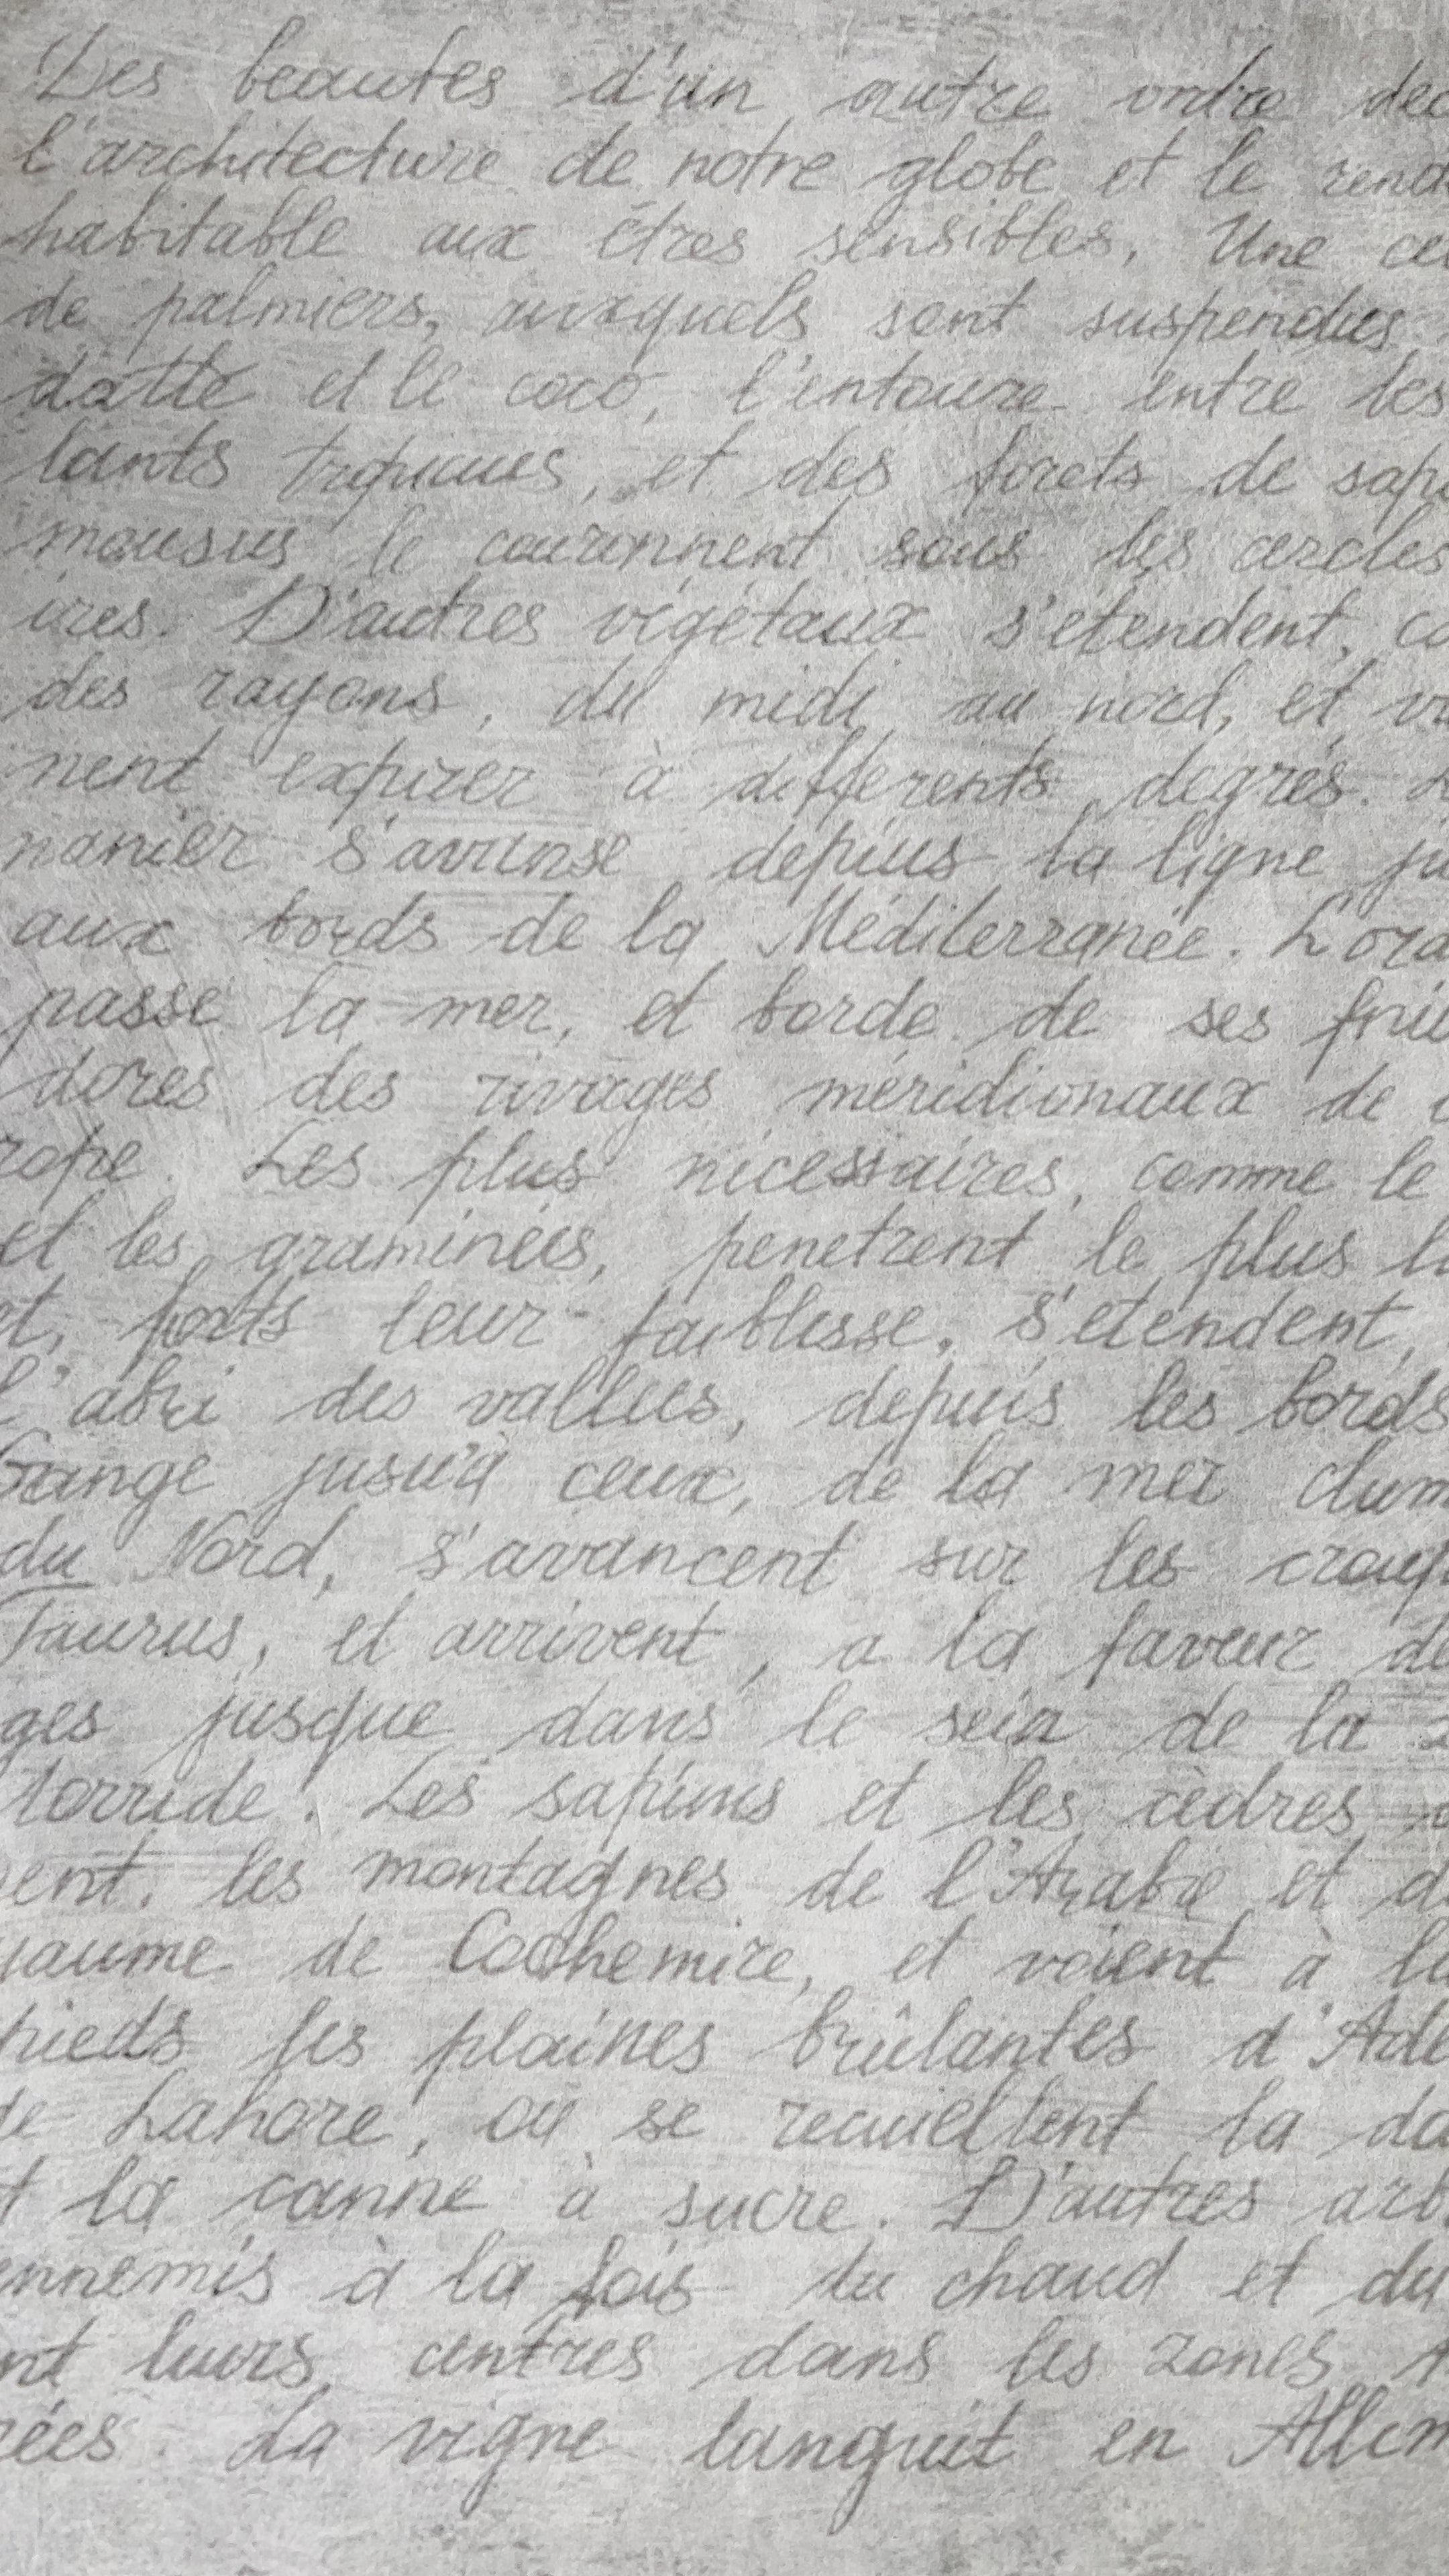 Des beautes d'un autre ordre dec
l'architecture de notre globe et le rend
habitable aux êtres sensibles, Une cei
de palmiers, auxquels sont suspendus
datte et le coco, l'entoure entre les
lants tropiques, et des forets de sapi
mousus le couronnent sous les cercles
ires. D'autres végétaux s'etendent, co
des rayons, du midi au nord, et vi
nent expirer à differents degrés. L
nanier s'avanse depuis la ligne ju
aux bords de la Méditerranée. L'ora
passe la mer, et borde de ses frui
dores des rivages méridionaux de
rope. Les plus nécessaires, comme le
et les graminées, penetrent le plus l
et, forts leur faiblesse, s'etendent,
l'abri des vallees, depuis les bords
Gange jusu'à ceux, de la mer
du Nord, s'avancent sur les croup
Taurus, et arrivent, a la faveur de
ges jusque dans le sein de la
torride. Les sapins et les cèdres
ent. les montagnes de l'Arabie et d
yaume de Cachemire, et voient à l
pieds les plaines brûlantes d'Ade
de Lahore, ou se recueillent la da
t la canne à sucre. D'autres arb
ennemis à la fois du chaud et du
nt leurs centres dans les zones
ées. La vigne languit en Allem